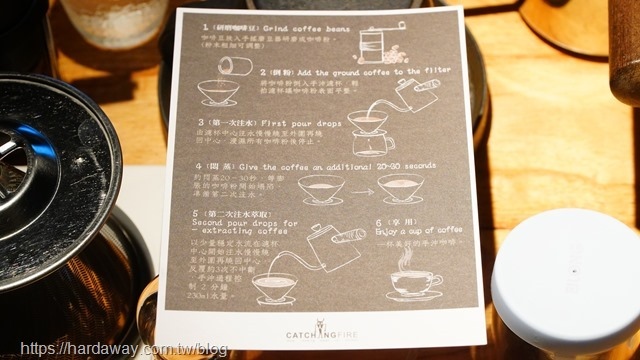 1 (研磨咖啡豆) Grind coffee beans
咖啡豆放入手搖磨豆器研磨成咖啡粉。
(粉末粗細可調整)
2 (倒粉) Add the ground coffee to the filter
將咖啡粉倒入手沖濾杯，輕
拍濾杯讓咖啡粉表面平整。
3 (第一次注水) First pour drops
由濾杯中心注水慢慢繞至外圍再繞
回中心，浸濕所有咖啡粉後停止。
4 (悶 蒸) Give the coffee an additional 20-30 seconds
約悶蒸20-30秒，等膨
脹的咖啡粉開始塌陷，
準備第二次注水。
5 (第二次注水萃取)
Second pour drops for
extracting coffee
以少量穩定水流在濾杯
中心開始注水慢慢繞
至外圍再繞回中心，
反覆約3次不中斷
，手沖過程控
制 2 分鐘
230ml水量。
6 (享 用)
Enjoy a cup of coffee
一杯美好的手沖咖啡。
CATCHINGFIRE
https://hardaway.com.tw/blog